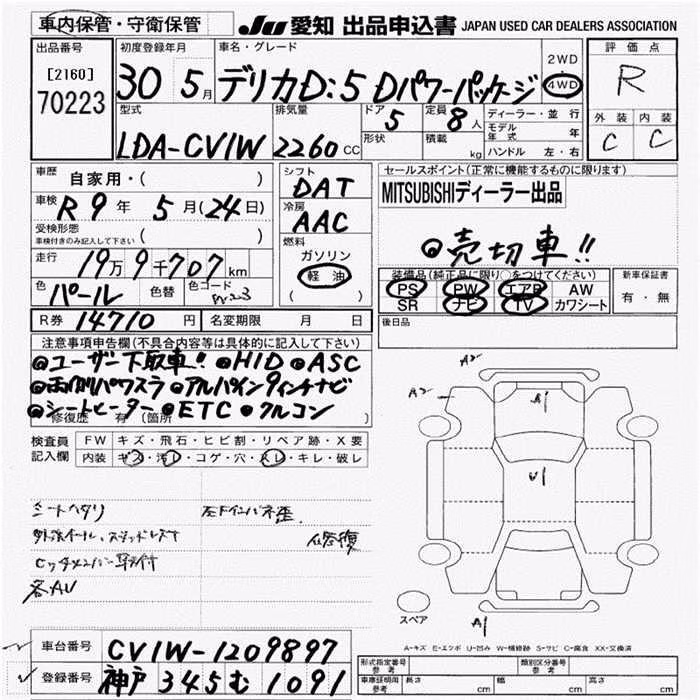 車内保管・守衛保管 JU 愛知 出品申込書 JAPAN USED CAR DEALERS ASSOCIATION
出品番号 初度登録年月 車名・グレード 評価点
[2160] 30 5月 デリカD:5 Dパワーパッケージ 2WD 4WD R
70223
型式 排気量 ドア 定員 ディーラー・並行 外装 内装
LDA-CV1W 2260 CC 5 8人 モデル年式 年 C C
形状 積載 kg ハンドル 左・右
車歴 自家用・( ) シフト DAT セールスポイント(正常に機能するものに限ります)
車検 R9年 5月(24日) 冷房 AAC MITSUBISHIディーラー出品
受検形態 ( ) 燃料 ◎売切車!!
車検付きのみ記入して下さい ガソリン
走行 19万9千707km 軽油 装備品(純正品に限り○をつけてください) 新車保証書
色 パール 色替 色コード ( ) PS PW エアB AW 有・無
SR ナビ TV カワシート
R券 14710円 名変期限 月 日 後日品
注意事項申告欄(不具合内容等は具体的に記入して下さい)
◎ユーザー下取車!! ◎HID ◎ASC
◎両側パワスラ ◎アルパイン9インチナビ
◎シートヒーター ◎ETC ◎クルコン
修復歴 有(箇所
検査員 FW キズ・飛石・ヒビ割・リペア跡・X要
記入欄 内装 キズ・汚レ・コゲ・穴・スレ・キレ・破レ
A2
A2 A1
U1
シートヘタリ
修復
スペア A1
A-キズ E-エクボ U-凹み W-補修跡 S-サビ C-腐食 XX-交換済
車台番号 CV1W-1209897 形式指定番号 参考 類別区分番号 参考
登録番号 神戸 345 む 1091 車庫証明用 参考 長さ cm 幅 cm 高さ cm